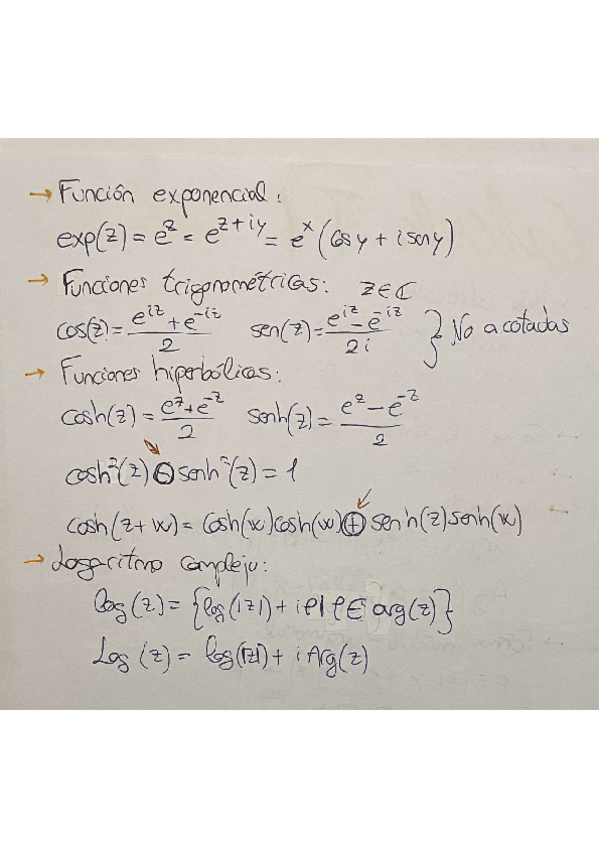 → Función exponencial:
exp(z) = e^z = e^{z+iy} = e^x (cos y + i sen y)
→ Funciones trigonométricas: z ∈ ℂ
cos(z) = (e^{iz} + e^{-iz})/2 sen(z) = (e^{iz} - e^{-iz})/2i } No acotadas
→ Funciones hiperbólicas:
cosh(z) = (e^z + e^{-z})/2 senh(z) = (e^z - e^{-z})/2
cosh²(z) ⊖ senh²(z) = 1
cosh(z+w) = cosh(w)cosh(w) ⊕ senh(z)senh(w)
→ Logaritmo complejo:
log(z) = {log(|z|) + iφ | φ ∈ arg(z)}
Log(z) = log(|z|) + i Arg(z)